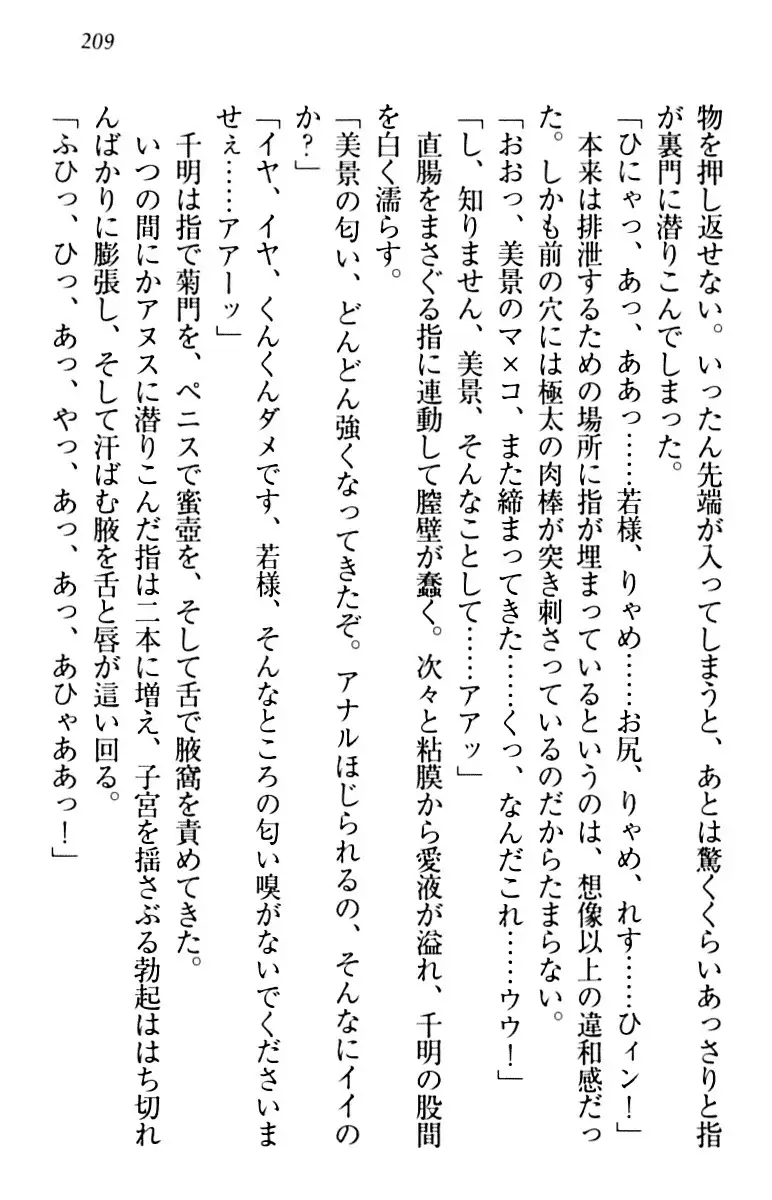 209
物を押し返せない。いったん先端が入ってしまうと、あとは驚くくらいあっさりと指
が裏門に潜りこんでしまった。
「ひにゃっ、あっ、ああっ……若様、りゃめ……お尻、りゃめ、れす……ひィン！」
本来は排泄するための場所に指が埋まっているというのは、想像以上の違和感だっ
た。しかも前の穴には極太の肉棒が突き刺さっているのだからたまらない。
「おおっ、美景のマ×コ、また締まってきた……くっ、なんだこれ……ゥウ！」
「し、知りません、美景、そんなことして……アアッ」
直腸をまさぐる指に連動して膣壁が蠢く。次々と粘膜から愛液が溢れ、千明の股間
を白く濡らす。
「美景の匂い、どんどん強くなってきたぞ。アナルほじられるの、そんなにイイの
か？」
「イヤ、イヤ、くんくんダメです、若様、そんなところの匂い嗅がないでくださいま
せぇ……アアーッ」
千明は指で菊門を、ペニスで蜜壺を、そして舌で腋窩を責めてきた。
いつの間にかアヌスに潜りこんだ指は二本に増え、子宮を揺さぶる勃起ははち切れ
んばかりに膨張し、そして汗ばむ腋を舌と唇が這い回る。
「ふひっ、ひっ、あっ、やっ、あっ、あっ、あひゃああっ！」